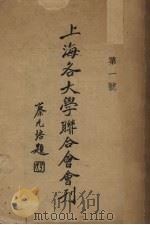 第一號
上海各大學聯合會會刊
蔡元培題